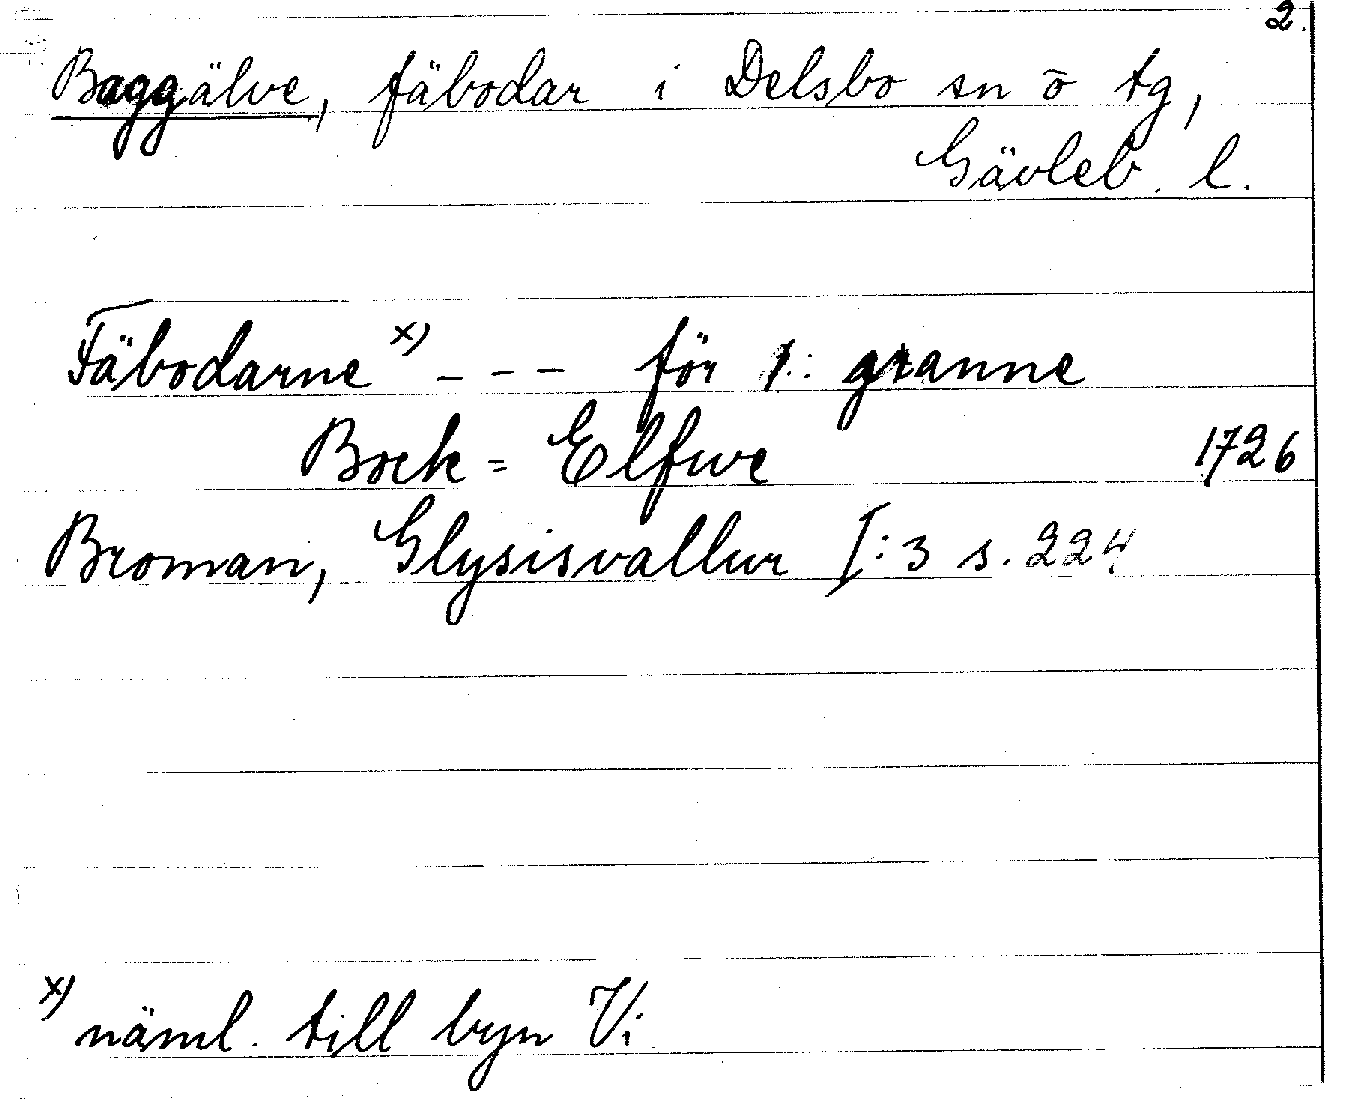 2.
Baggälve, fäbodar i Delsbo sn o tg,
Gävleb. l.
Fäbodarne x) - - - för 1: granne
Bock = Elfwe 1726
Broman, Glysisvallur I:3 s. 224
x) näml. till byn Vi